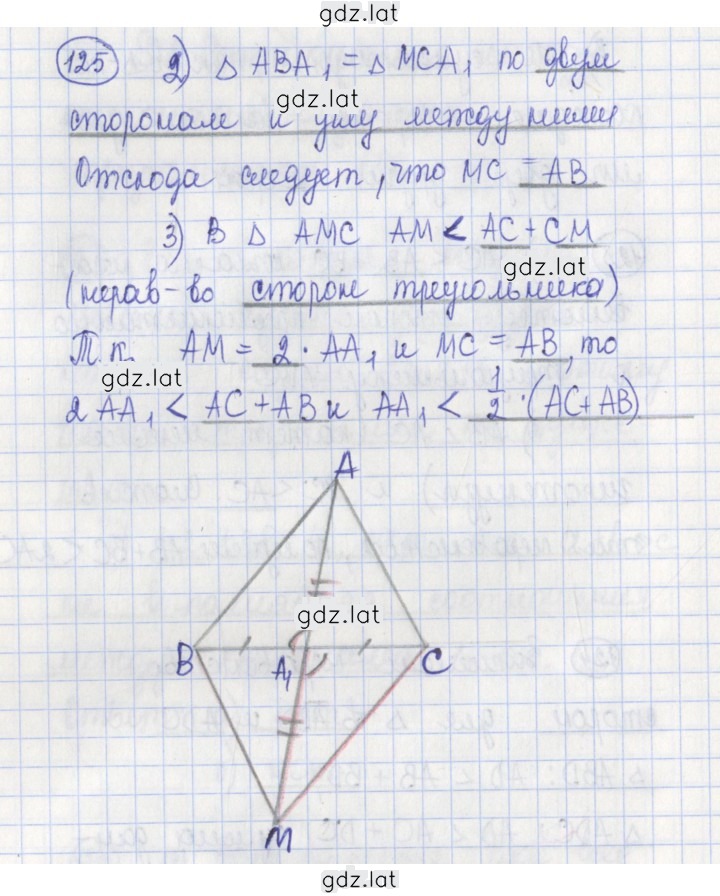 gdz.lat
125 2) △ ABA₁ = △ MCA₁ по двум
gdz.lat
сторонам и углу между ними
Отсюда следует, что MC = AB
3) В △ AMC AM < AC + CM
gdz.lat
(нерав-во сторон треугольника)
Т.к. AM = 2 · AA₁ и MC = AB, то
gdz.lat
2 AA₁ < AC + AB и AA₁ < 1/2 · (AC + AB)
A
gdz.lat
B A₁ C
M
gdz.lat